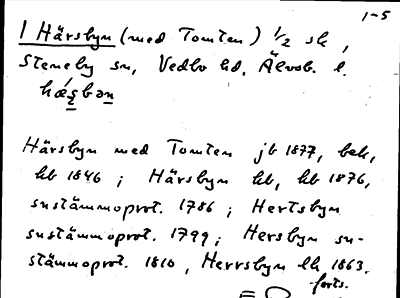 1-5
1 Härsbyn (med Tomten) 1/2 sk,
Steneby sn, Vedbo hd, Älvsb. l.
Härsbyn med Tomten jb 1877, bek,
kb 1846; Härsbyn kb, kb 1876,
sustämmoprot. 1786; Hertsbyn
sustämmoprot. 1799; Hersbyn su-
stämmoprot. 1810, Herrsbyn lk 1863.
forts.